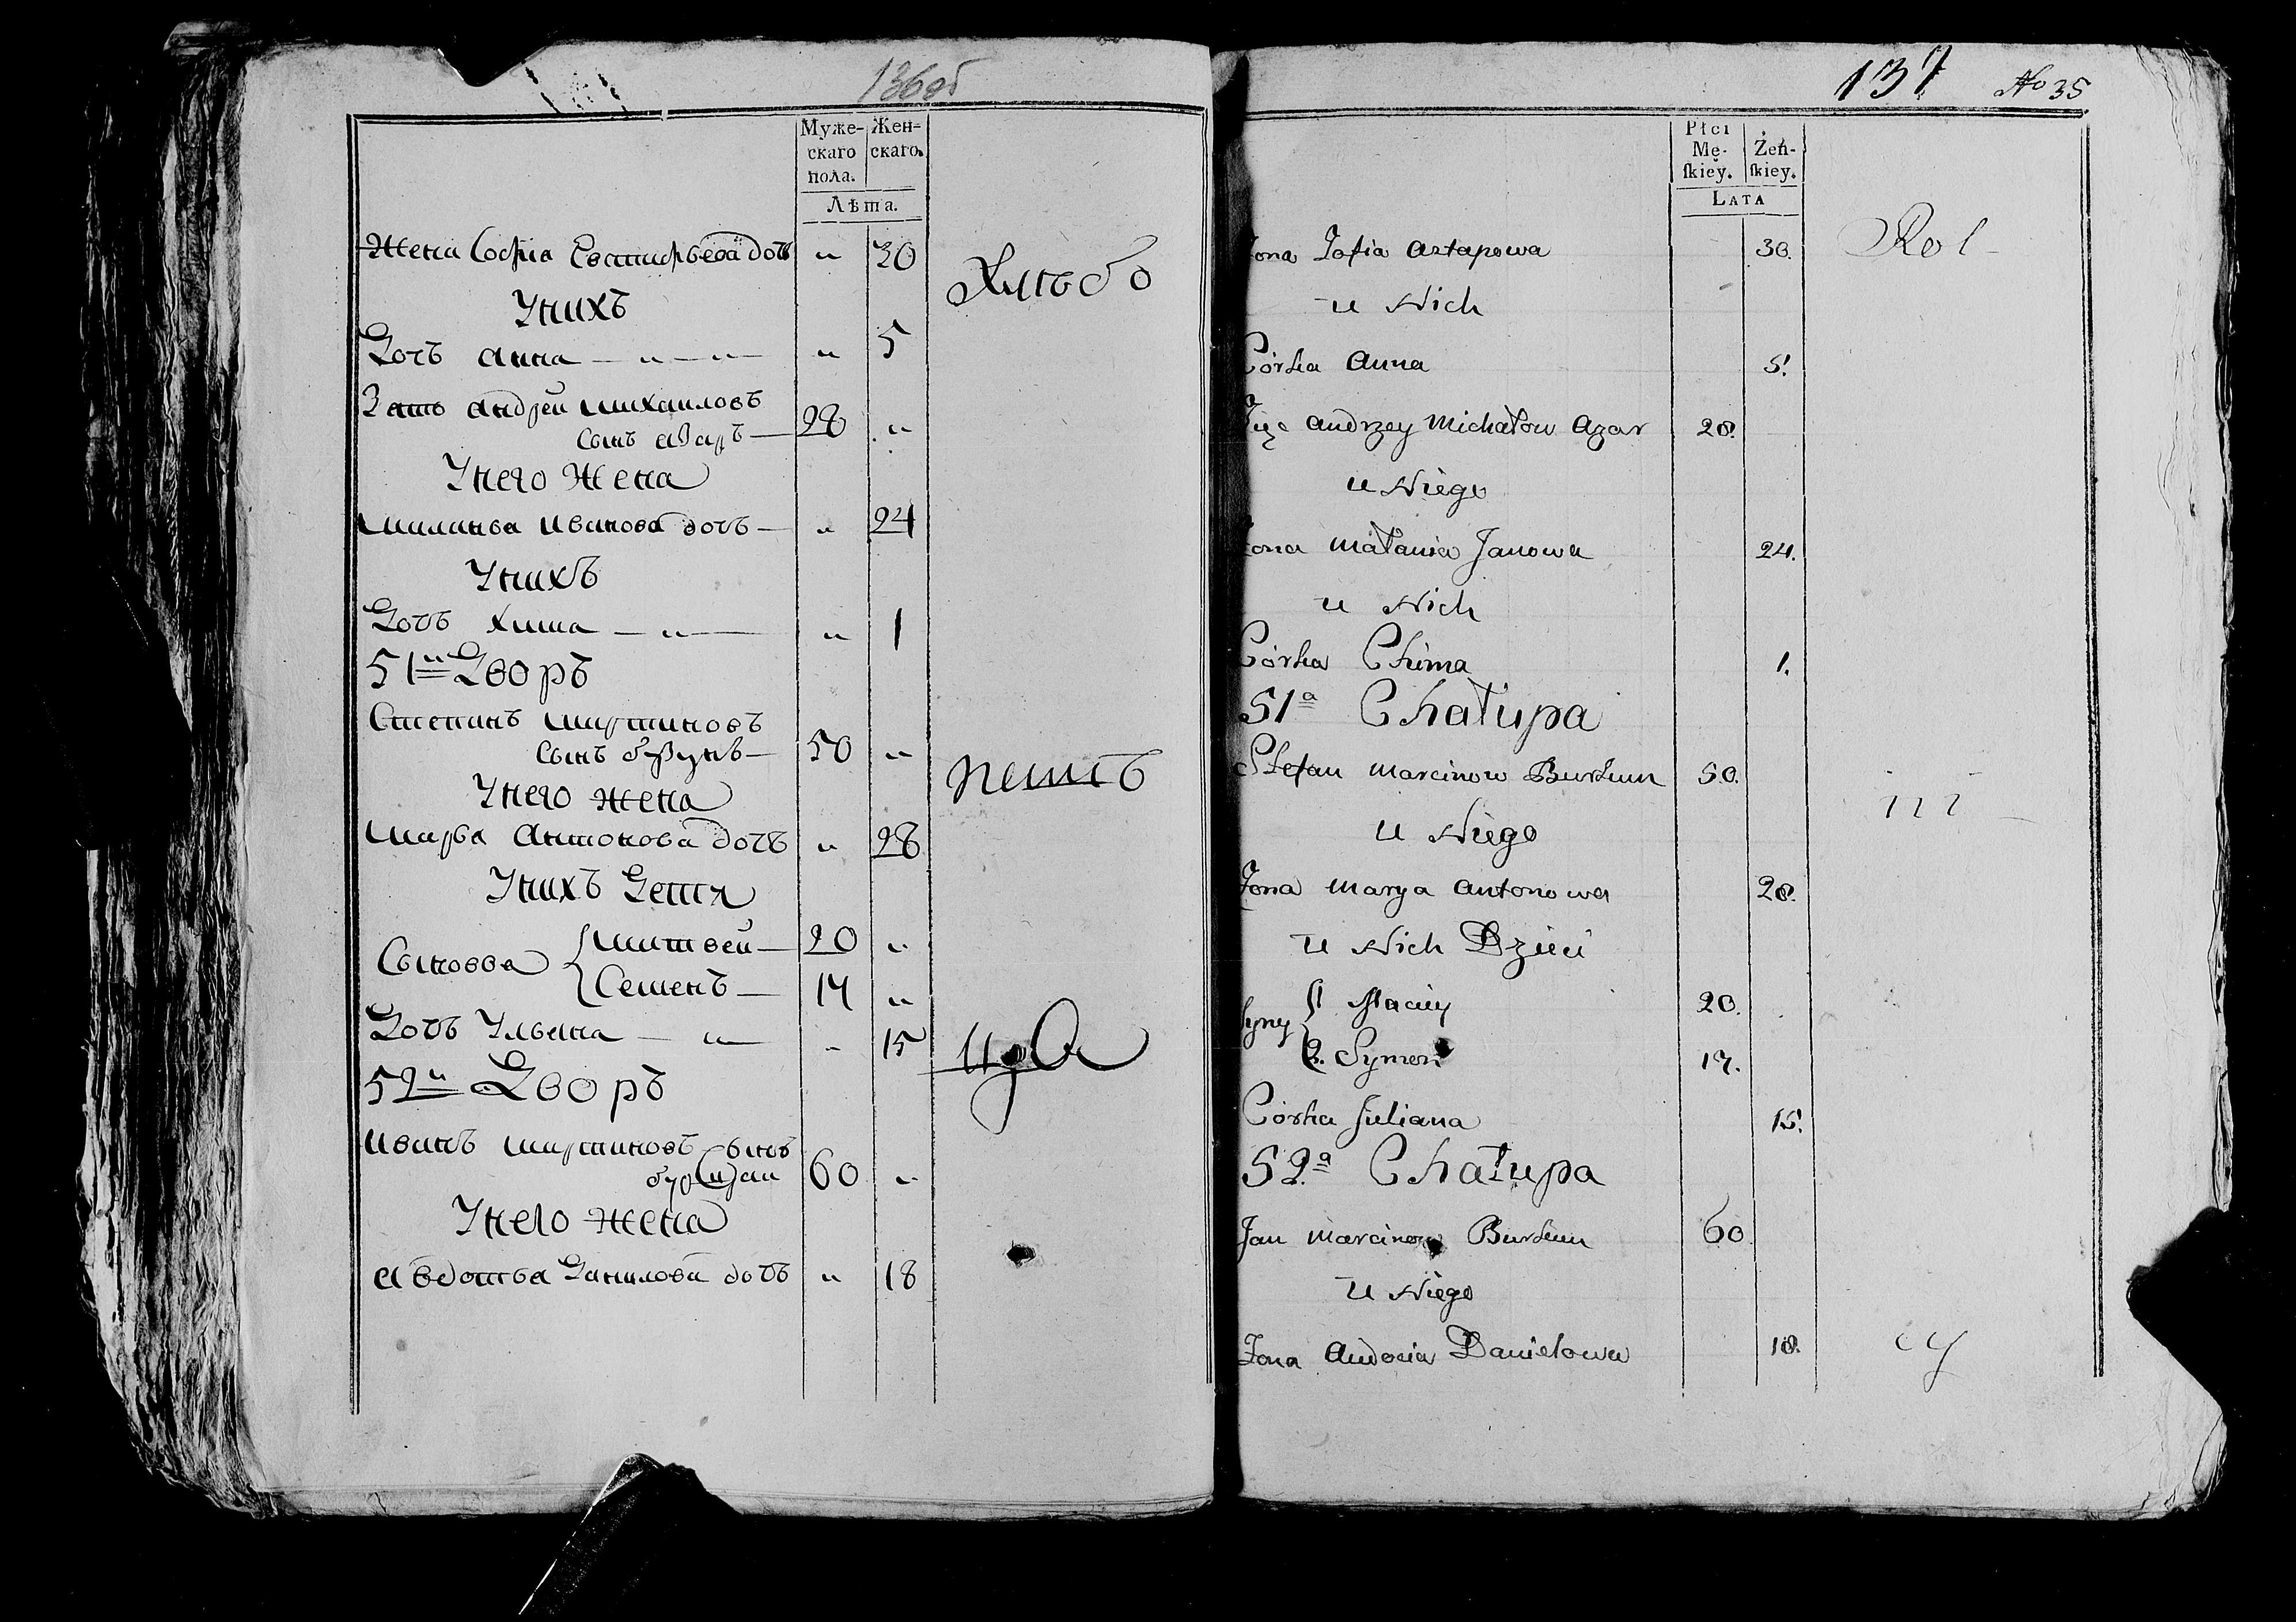 136об
Муже- Жен-
скаго скаго.
пола.
Лѣта.
Жена Софиа дочь " 30
Хлѣбо
Унихъ
Дочь Анна — " — " — " 5
Зять Андрей Михаиловъ
сынъ Азаръ — 28 "
Унего Жена
Миланья Иванова дочь — " 24
Унихъ
Дочь Хима — " — " 1
51й Дворъ
Степанъ Мартиновъ
сынъ — 50 "
пешъ
Унего жена
Марья Антонова дочь " 28
Унихъ Дети
Сыновья { Матвей — 20 "
Семенъ — 17 "
Дочь Ульяна — " " 15
52й Дворъ
Иванъ Мартиновъ сынъ
60 "
Унего жена
Авдотья Данилова дочь " 18
137 No 35
Płci
Mę- Żeń-
ſkiey. ſkiey.
LATA
Żona Zofia Astapowa 30. Rol-
u Nich
Córka Anna 5.
Zięc Andrzey Michałow Azar 28.
u Niego
Żona Matania Janowa 24.
u Nich
Córka Chima 1.
51a Chałupa
Stefan Marcinow Burkun 50.
u Niego
Żona Marya Antonowa 28.
u Nich Dzieci
Syny { 1. Maciey 20.
2. Symon 17.
Córka Juliana 15.
52a Chałupa
Jan Marcinow Burkun 60
u Niego
Żona Audocia Danielowa 18. cy